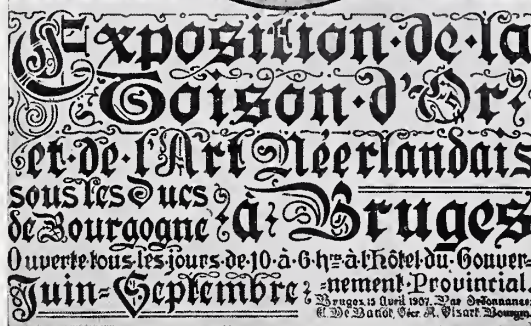 Exposition·de·la
Toison·d'Or
et·de·l'Art Néerlandais
sous les Ducs
de Bourgogne
à Bruges
Ouverte·tous·les·jours·de·10·à·6·hres·à·l'hôtel·du·Gouver=
=nement·Provincial.
Juin=Septembre
Bruges, 15 Avril 1907. Par Ordonnance,